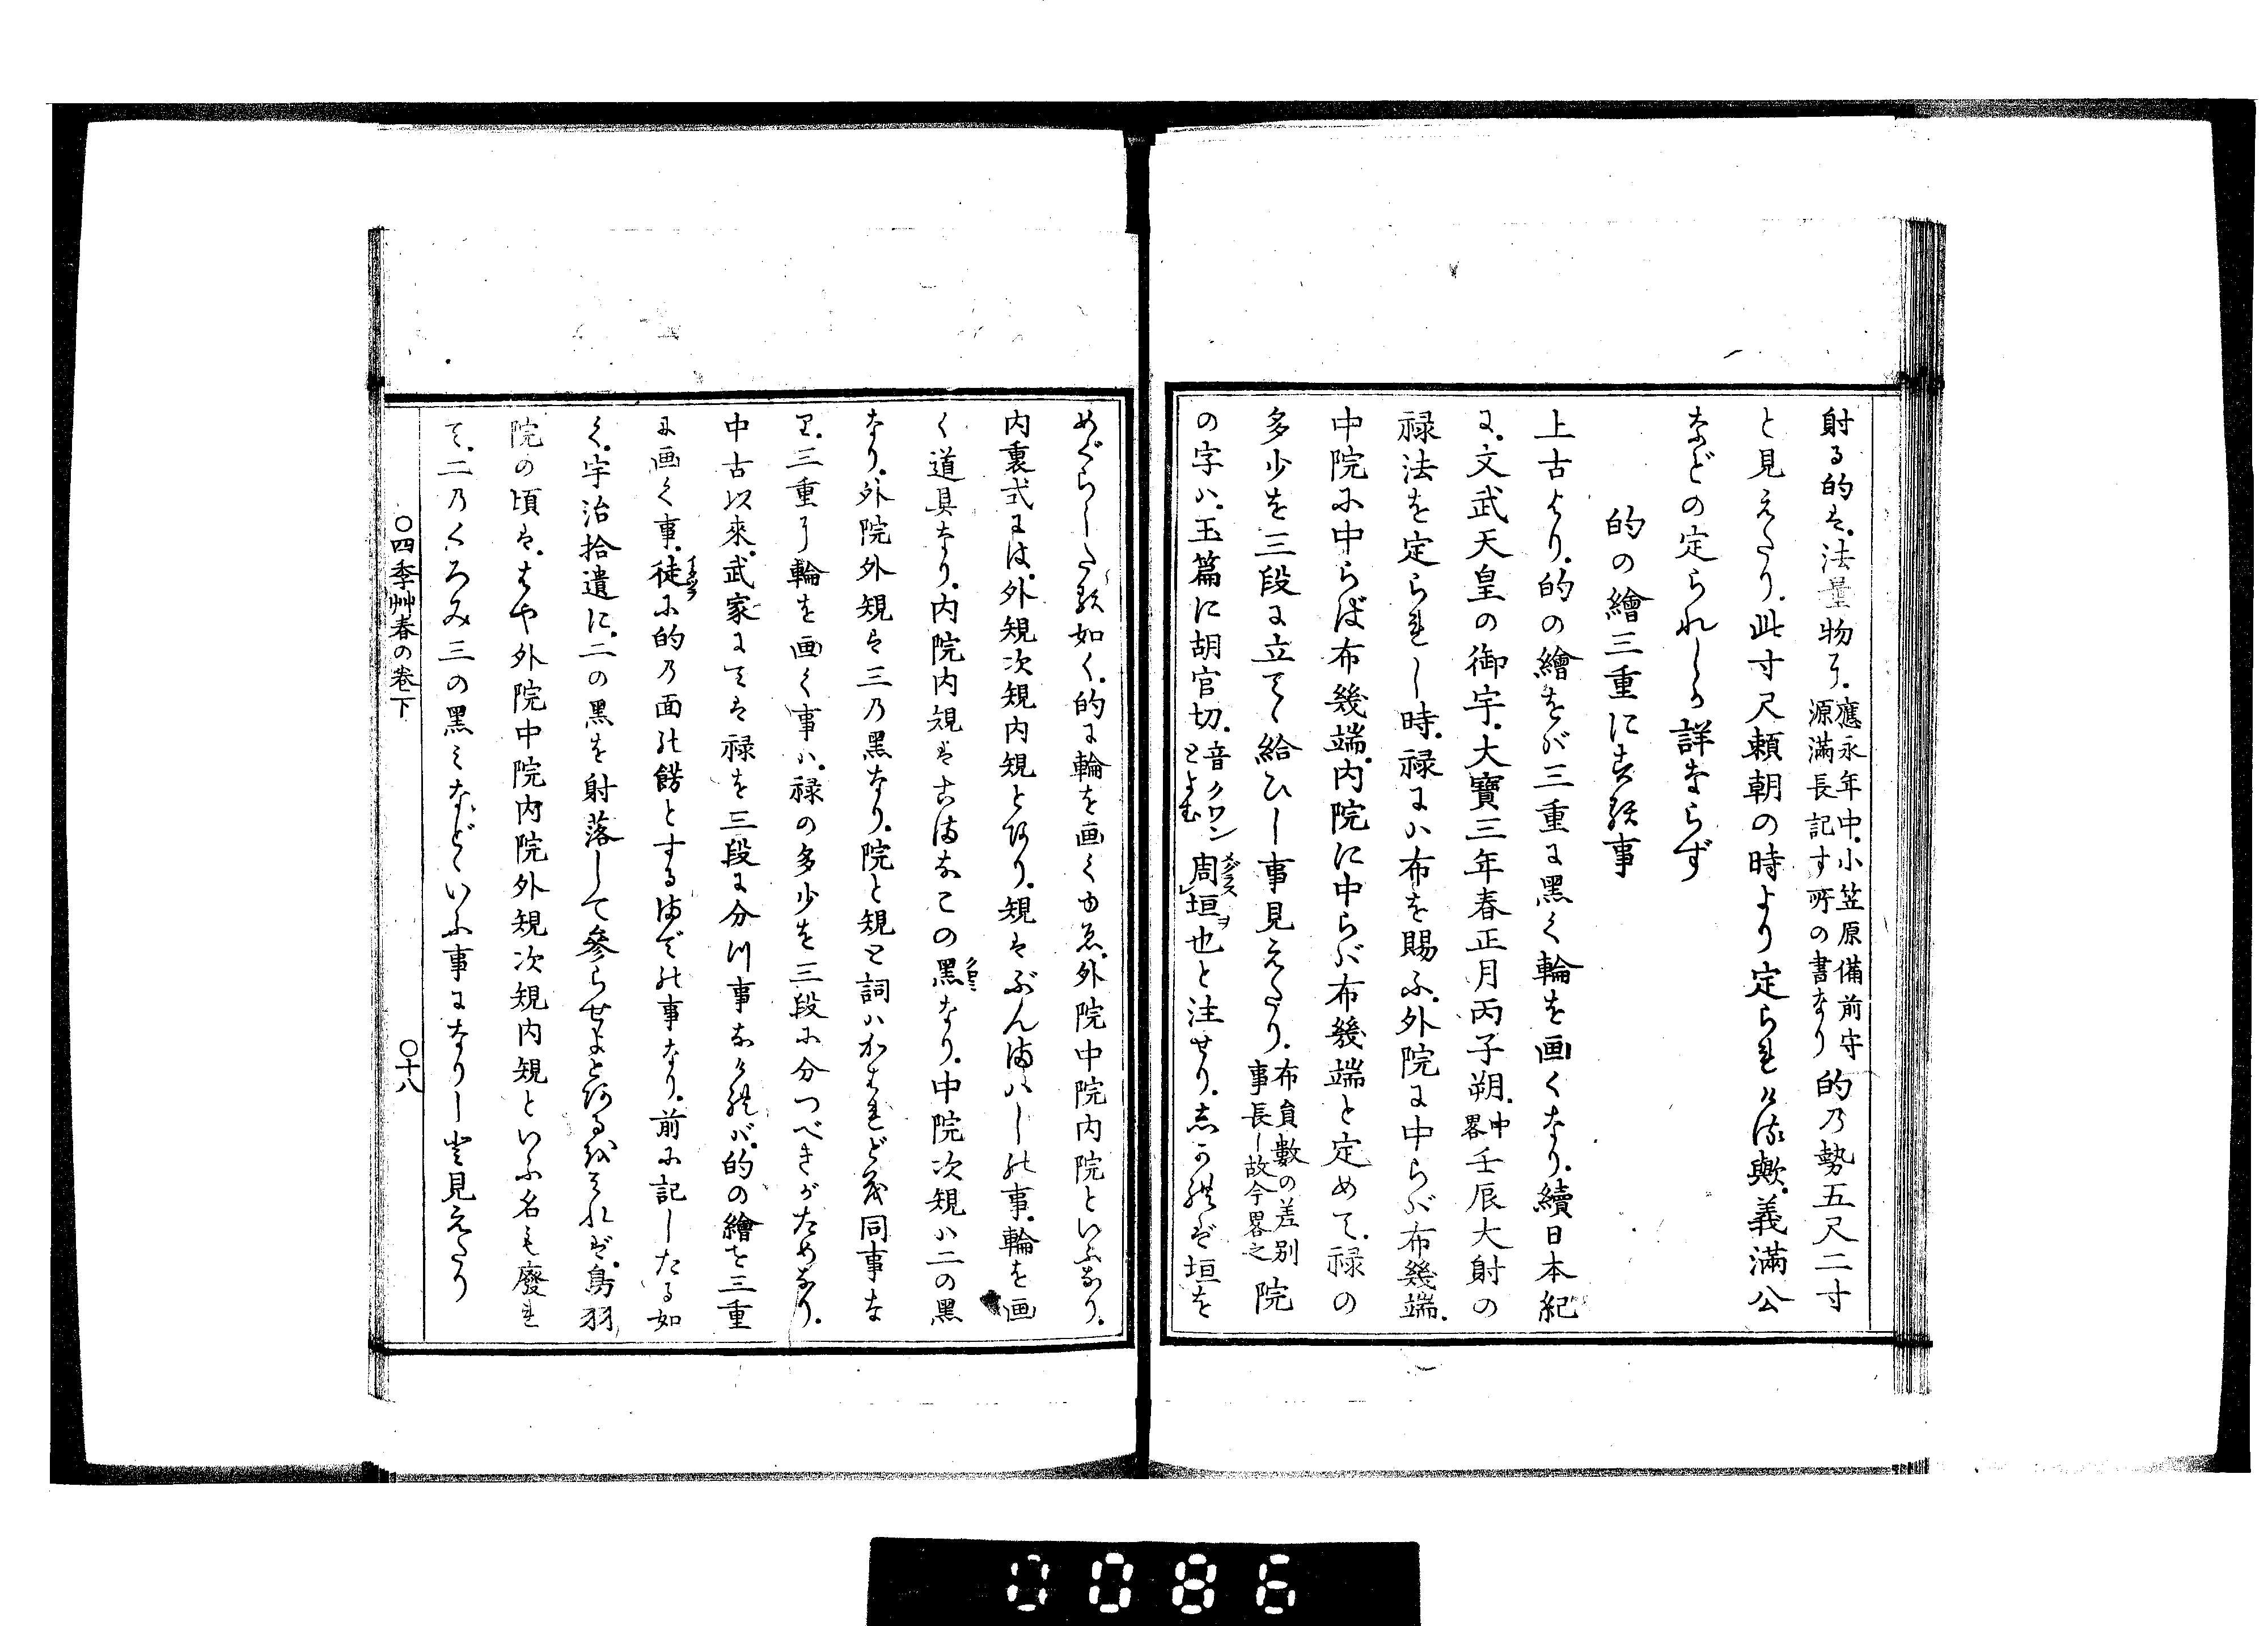 射る的は。法量物に。應永年中。小笠原備前守源滿長記す所の書なり的乃勢五尺二寸
と見えたり。此寸尺頼朝の時より定られける歟。義滿公
などの定られしか詳ならず
的の繪三重にする事
上古より。的の繪をが三重に黑く輪を画くなり。續日本紀
に。文武天皇の御宇。大寶三年春正月丙子朔。中畧壬辰大射の
禄法を定られし時。禄には布を賜ふ。外院に中らば布幾端。
中院に中らば布幾端。内院に中らば布幾端と定めて。禄の
多少を三段に立てゝ給ひし事見えたり。布員數の差別事長し故今畧之院
の字ハ。玉篇に胡官切。音クワンとよむ周メグラス垣ヲ也と注せり。しかれば垣を
めぐらしたる如く。的に輪を画くゆゑ。外院中院内院といふなり。
内裏式には。外規次規内規とあり。規はぶんまはしの事。輪を画
く道具なり。内院内規はまなこの黑なり。中院次規ハ二の黑
なり。外院外規は三乃黑なり。院と規と詞ハかはれども同事な
り。三重に輪を画く事ハ。禄の多少を三段に分つべきがためなり。
中古以來。武家にては禄を三段に分つ事なければ。的の繪を三重
に画く事。徒に的乃面の餝とするまでの事なり。前に記したる如
く。宇治拾遺に。二の黑を射落して參らせよとあるを以みれば。鳥羽
院の頃は。はや外院中院内院外規次規内規といふ名も廢れ
て。二乃くろみ三の黑みなどゝいふ事になりしと見えたり
〇四季艸春の卷下
〇十八
0086